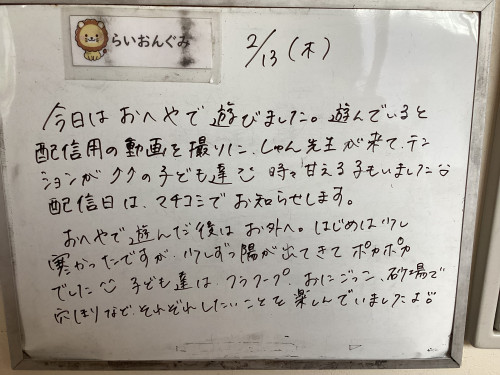 らいおんぐみ
2/13(木)
今日は おへやで 遊びました。遊んでいると
配信用の動画を撮りに、しゃん先生が来て、テン
ションが ククの子ども達 時々甘える子もいました
配信日は、マチコミで お知らせします。
おへやで遊んだ後は お外へ。はじめは少し
寒かったですが、少しずつ陽が出てきて ポカポカ
でした 子ども達は、フラフープ、おにごっこ、砂場で
穴ほりなど、それぞれしたいことを 楽しんでいましたよ